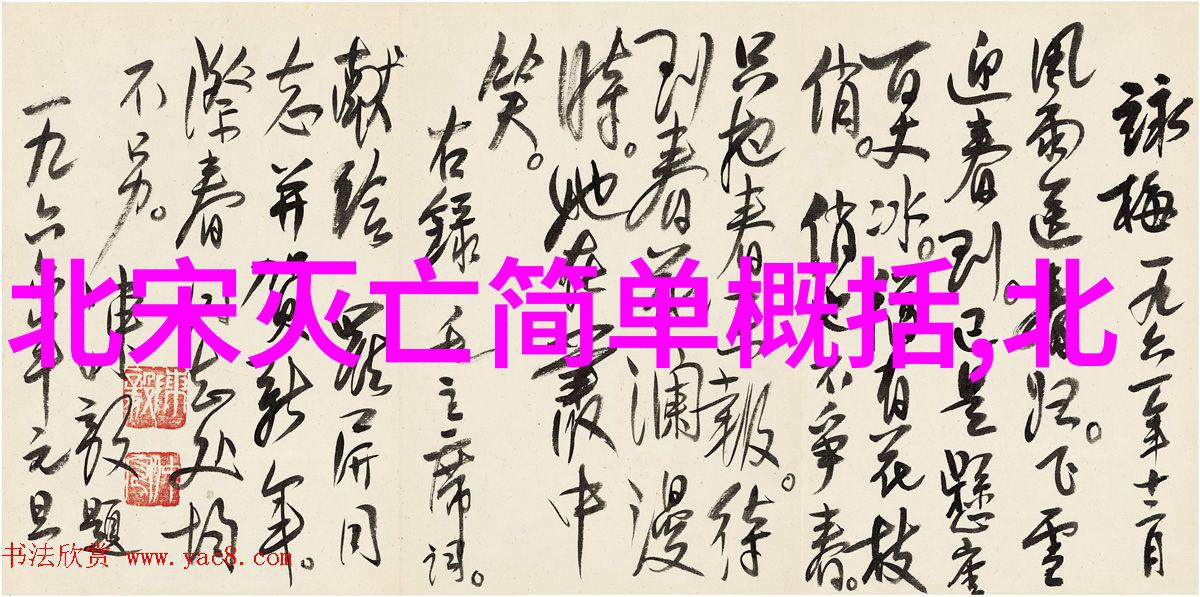 詠梅 一九六一年十二月
风雨送春归。飞雪
迎春到。已是悬崖
百丈冰。犹有花枝
俏。俏也不争春。
只把春来报。待
到春花烂漫
时。她在丛中
笑。
右录毛主席词。
献给 罗公併同
志并贺新年。
际春同志处均
不另。 陈毅题
一九六二年元旦
北宋灭亡简单概括,北
书法欣赏 www.yac8.com